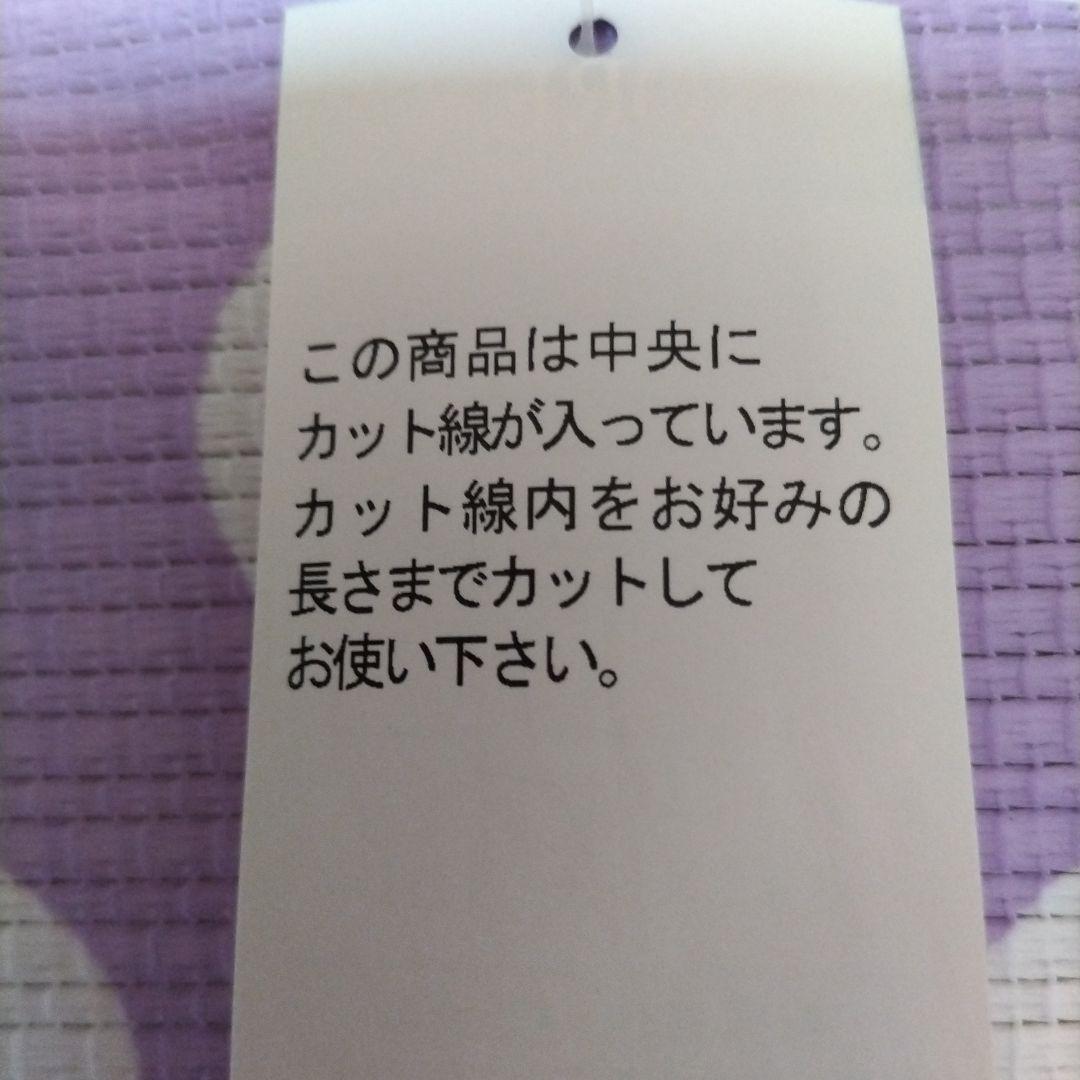 この商品は中央に
カット線が入っています。
カット線内をお好みの
長さまでカットして
お使い下さい。